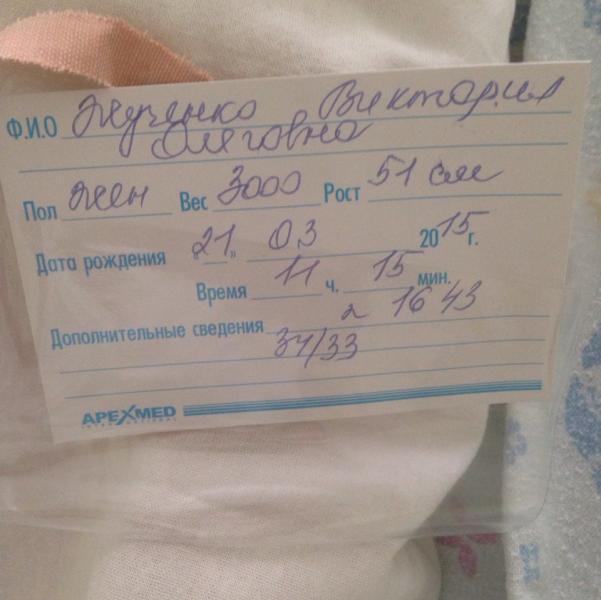 Ф.И.О Жученко Виктория
Олеговна
Пол жен Вес 3000 Рост 51 см
Дата рождения "21" 03 2015 г.
Время 11 ч. 15 мин.
Дополнительные сведения 16 43
34/33
APEXMED
INTERNATIONAL